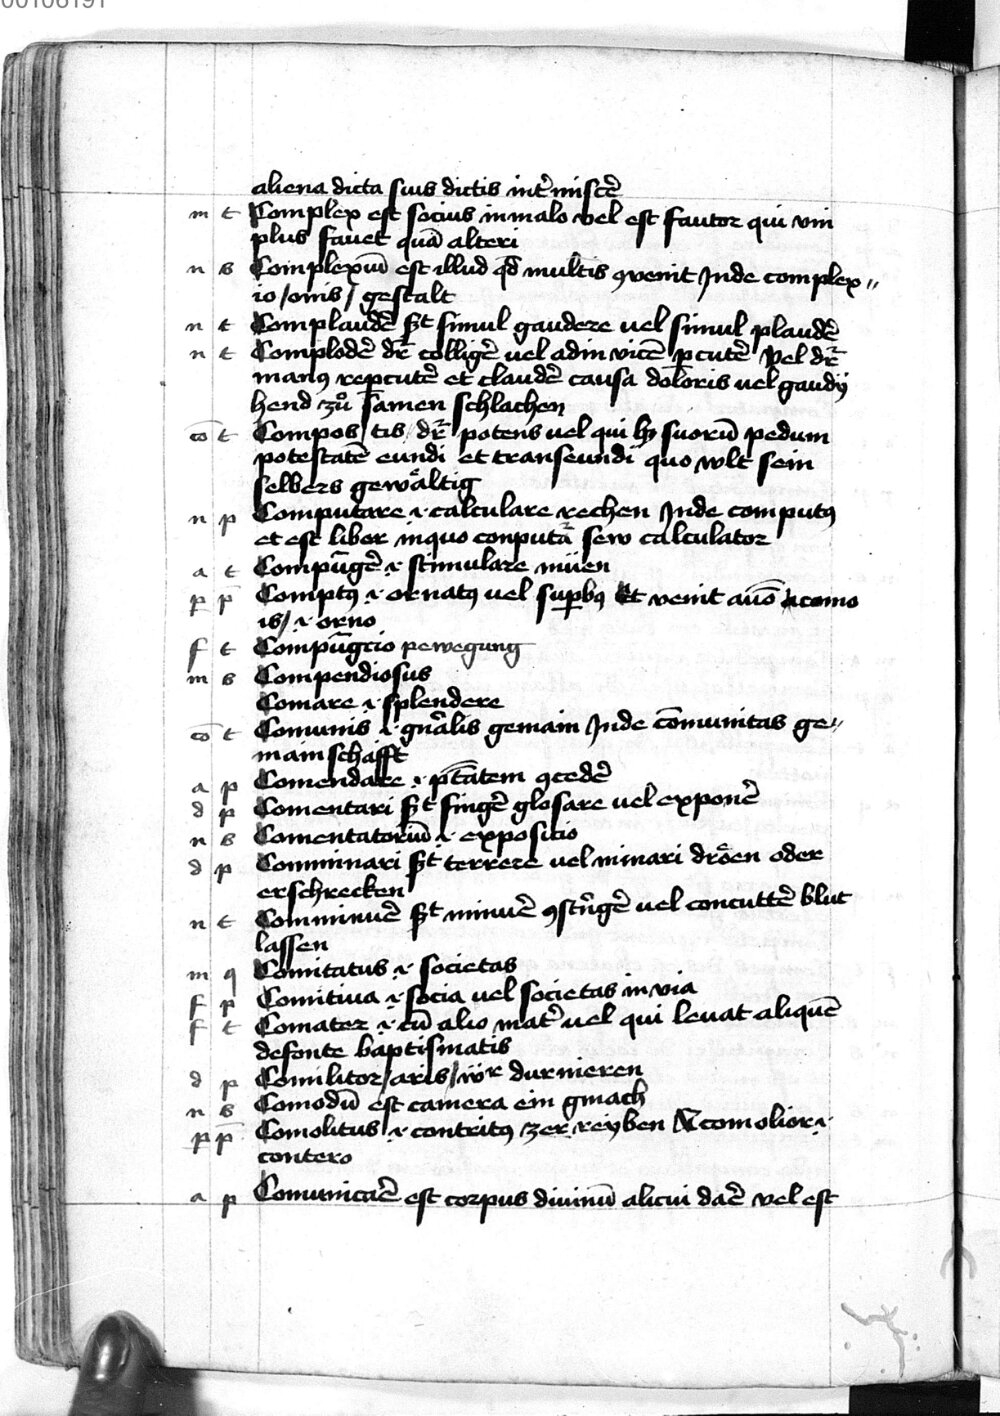 00106191
aliena dicta suis dictis int̄ miscē
m t Complex est socius in malo vel est fautor qui vni
plus fauet quā alteri
n s Complexiū est illud qd̄ multis ꝯuenit Inde complex〃
io /onis/ gestalt
n t Complaudē st simul gaudere uel simul plaudē
n t Complodē dr̄ colligē uel adinvicē ꝑcutē Vel dr̄
manꝰ reꝑcutē et claudē causa doloris uel gaudij
hend zů samen schlachen
cō t Compos /tis/ dr̄ potens uel qui hꝫ suorū pedum
potestatē eundi et transeundi quo wlt sein
selbers gewaͤltig
n p Computare .i. calculare rechen Inde computꝰ
et est liber in quo conputāt sew calculator
a t Compūgē .i. stimulare müen
p p̄ Comptꝰ .i. ornatꝰ uel suꝑbꝰ Et venit a uō como
is/ .i. orno
f t Compūgcio pewegung
m s Compendiosus
Comare .i. splendere
cō t Comunis .i. gn̄alis gemain Inde cōmunitas ge〃
mainschafft
a p Comendare .i. ptātem ꝯcedē
d p Comentari st fingē glosare uel exponē
n s Comentatoriū .i. expositio
d p Comminari st terrere uel minari droͤen oder
erschrecken
n t Comminuē st minuē ꝯstn̄gē uel concuttē blut
lassen
m q Comitatus .i. societas
f p Comitiua .i. socia uel societas in via
f t Comater .i. cū alio mat̄ uel qui leuat aliquē
de fonte baptismatis
d p Comilitor /aris/ wir durnieren
n s Comodū est camera ein gmach
p p̄ Comolitus .i. contritꝰ zer reyben A comolior .i.
contero
a p Comunicaē est corpus diuinū alicui daē vel est